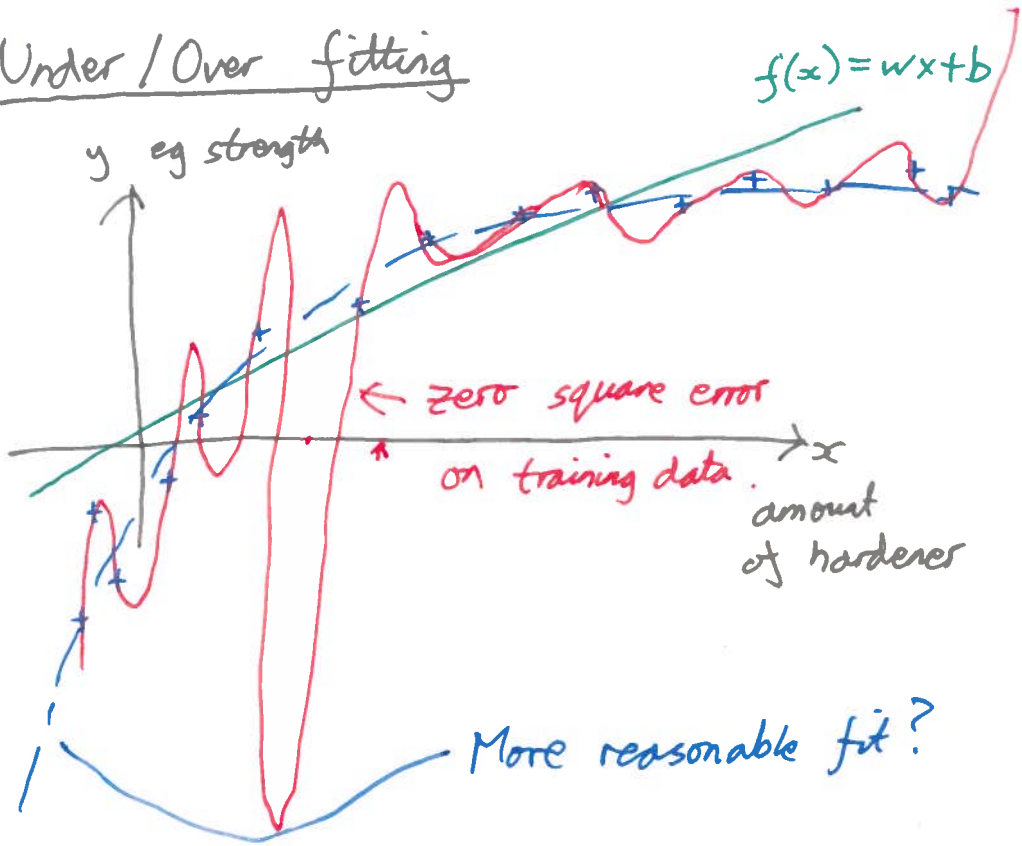 Under / Over fitting
f(x) = wx+b
y eg strength
← zero square error
on training data.
x
amount
of hardener
More reasonable fit?